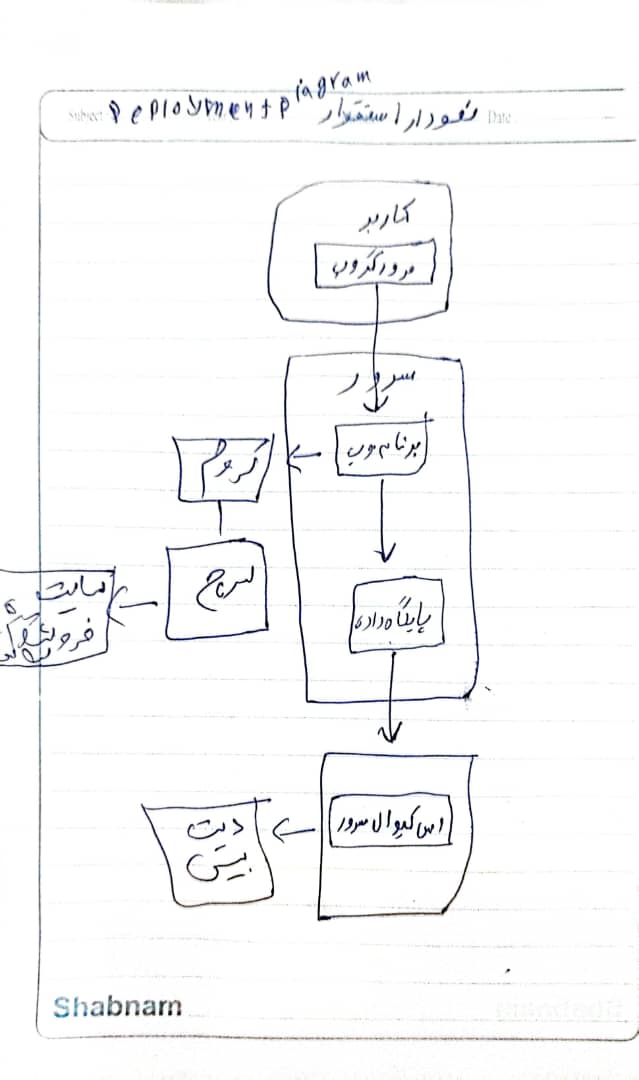 Deployment Diagram نمودار استقرار
Subject
Date
کاربر
مرورگر وب
سرور
برنامه وب
کروم
سرچ
سایت
فروشگاه
پایگاه داده
اس کیوال سرور
دیت
بیس
Shabnam